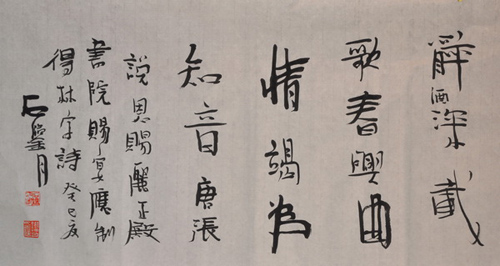 醉酒深載
歌春興曲
情竭為
知音 唐張
說恩賜麗正殿
書院賜宴應制
得林字詩 癸巳夏
石 月